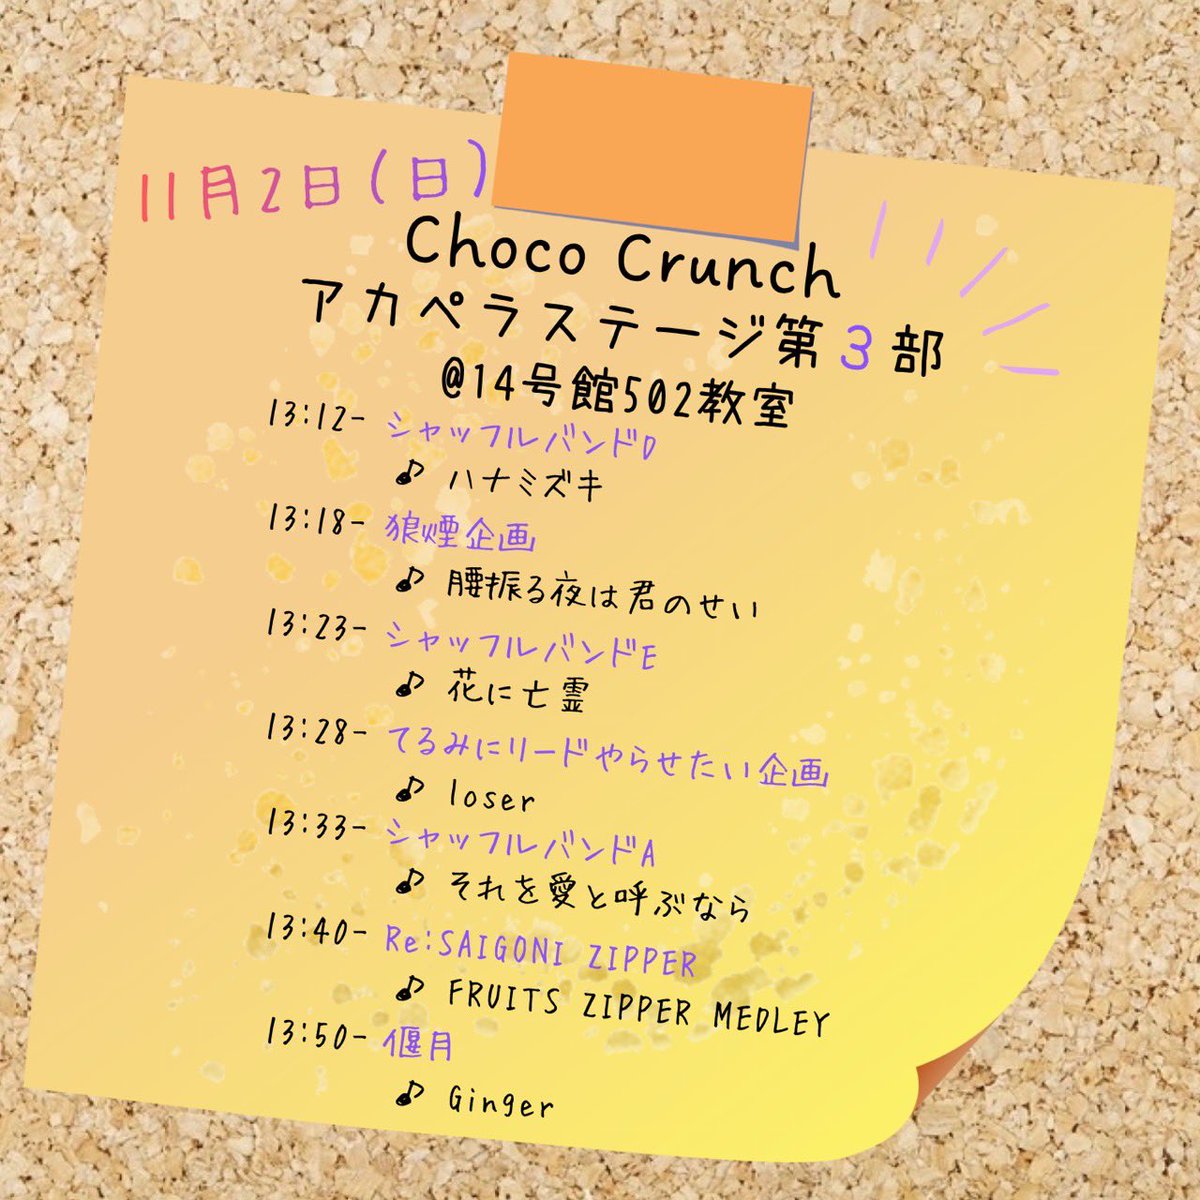 11月2日(日)
Choco Crunch
アカペラステージ第3部
@14号館502教室
13:12- シャッフルバンドD
♪ ハナミズキ
13:18- 狼煙企画
♪ 腰振る夜は君のせい
13:23- シャッフルバンドE
♪ 花に亡霊
13:28- てるみにリードやらせたい企画
♪ loser
13:33- シャッフルバンドA
♪ それを愛と呼ぶなら
13:40- Re:SAIGONI ZIPPER
♪ FRUITS ZIPPER MEDLEY
13:50- 偃月
♪ Ginger